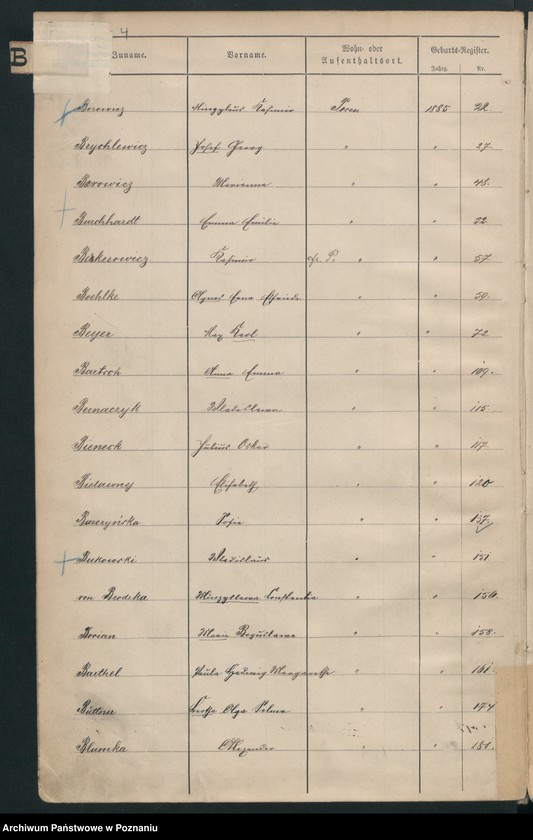 4
B
Zuname. Vorname. Wohn- oder Aufenthaltsort. Geburts-Register.
Jahrg. Nr.
Kasimir Posen 1885 22.
Brychlewicz Josef Georg " " 27.
Borowicz Marianna " " 48.
Burchhardt Emma Emilie " " 52.
Kasimir " " 57
Boehlke Agnes Erna " " 59.
Beyer Max Karl " " 72
Bartsch Anna Emma " " 109.
Bernaczyk Wladislawa " " 115.
Bieneck Julius Oskar " " 117.
Bielawny Elisabeth " " 120
Barczyńska Sofie " " 137.
Bukowski Wladislaus " " 151
von Brodzka Constantia " " 156.
Dorian Maria Boguslawa " " 158.
Barthel Paula Hedwig Margarethe " " 161.
Büttner Olga Selma " " 174
Blumka Alexander " " 181.
Archiwum Państwowe w Poznaniu